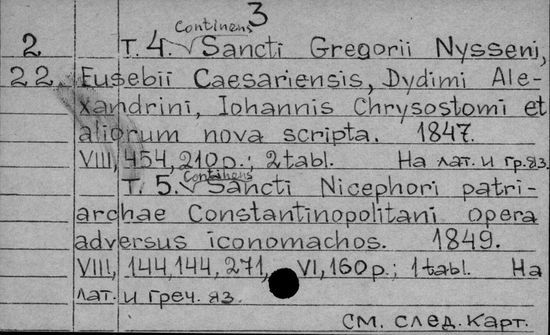 3
Continens
2 Т. 4. Sancti Gregorii Nysseni,
22 Eusebii Caesariensis, Dydimi Ale-
xandrini, Iohannis Chrysostomi et
aliorum nova scripta. 1847.
VIII, 454, 210 p.; 2 tabl. На лат. и гр. яз.
Continens
Т. 5. Sancti Nicephori patri-
archae Constantinopolitani opera
adversus iconomachos. 1849.
VIII, 144, 144, 271, VI, 160 p.; 1 tabl. На
лат. и греч. яз.
см. след. карт.